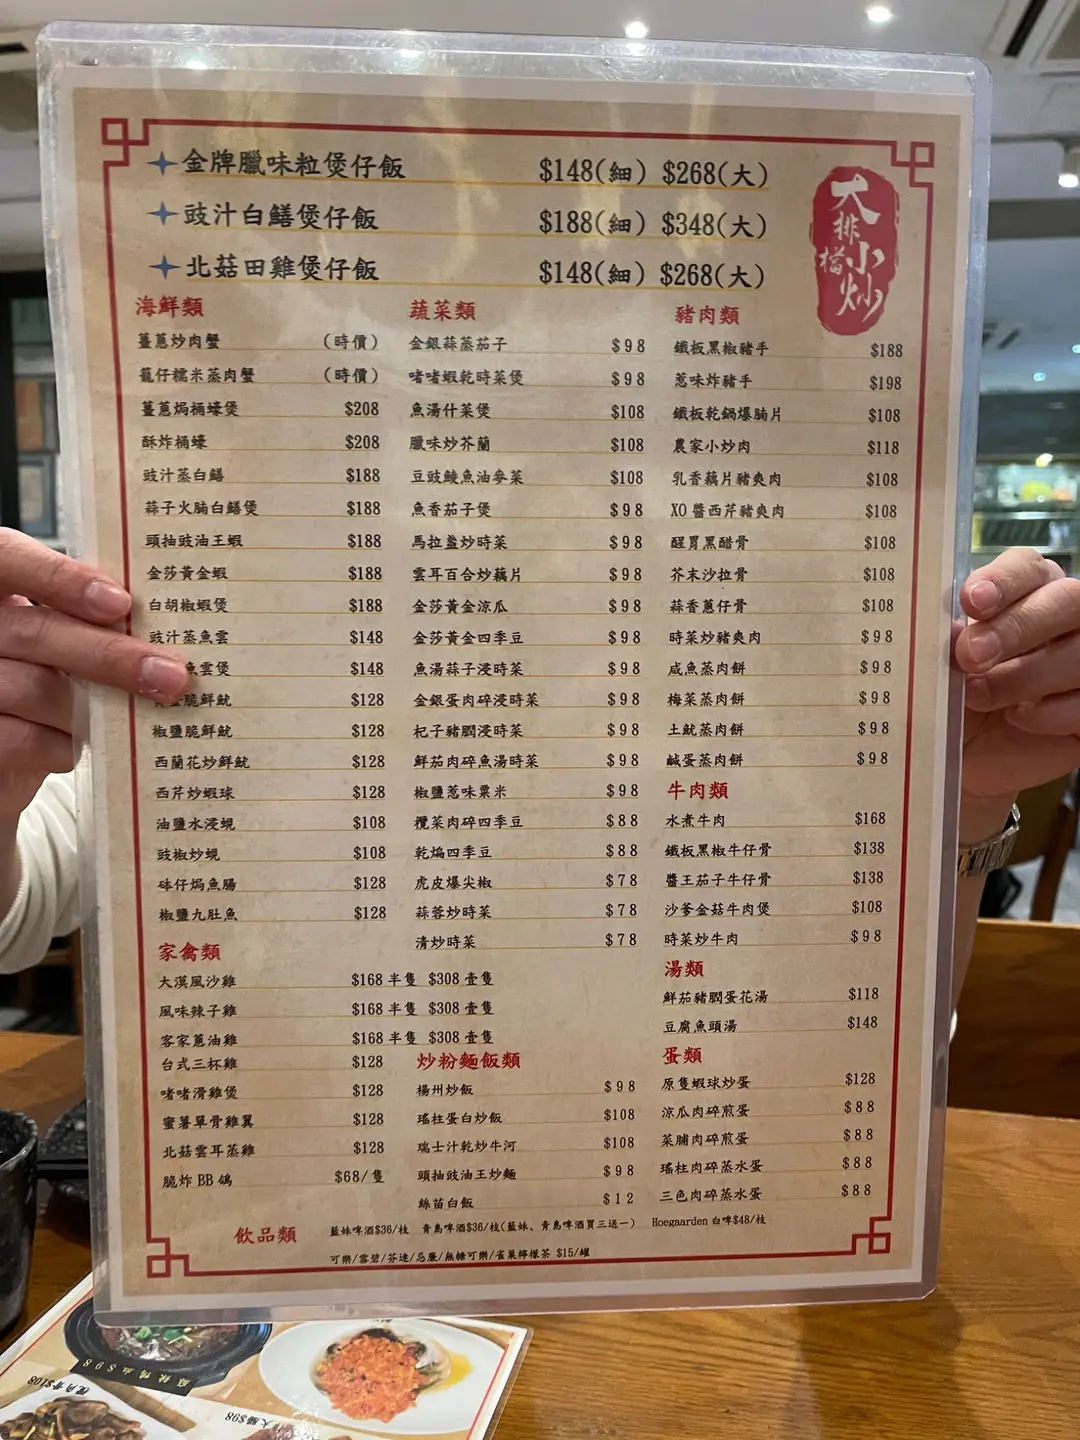 金牌臘味粒煲仔飯 $148(細) $268(大)
豉汁白鱔煲仔飯 $188(細) $348(大)
北菇田雞煲仔飯 $148(細) $268(大)
大排檔小炒
海鮮類
薑蔥炒肉蟹 (時價)
籠仔糯米蒸肉蟹 (時價)
薑蔥焗桶蠔煲 $208
酥炸桶蠔 $208
豉汁蒸白鱔 $188
蒜子火腩白鱔煲 $188
頭抽豉油王蝦 $188
金莎黃金蝦 $188
白胡椒蝦煲 $188
豉汁蒸魚雲 $148
魚雲煲 $148
脆鮮魷 $128
椒鹽脆鮮魷 $128
西蘭花炒鮮魷 $128
西芹炒蝦球 $128
油鹽水浸蜆 $108
豉椒炒蜆 $108
砵仔焗魚腸 $128
椒鹽九肚魚 $128
家禽類
大漠風沙雞 $168 半隻 $308 壹隻
風味辣子雞 $168 半隻 $308 壹隻
客家蔥油雞 $168 半隻 $308 壹隻
台式三杯雞 $128
啫啫滑雞煲 $128
蜜薯單骨雞翼 $128
北菇雲耳蒸雞 $128
脆炸 BB 鴿 $68/隻
蔬菜類
金銀蒜蒸茄子 $98
啫啫蝦乾時菜煲 $98
魚湯什菜煲 $108
臘味炒芥蘭 $108
豆豉鯪魚油麥菜 $108
魚香茄子煲 $98
馬拉盞炒時菜 $98
雲耳百合炒藕片 $98
金莎黃金涼瓜 $98
金莎黃金四季豆 $98
魚湯蒜子浸時菜 $98
金銀蛋肉碎浸時菜 $98
杞子豬膶浸時菜 $98
鮮茄肉碎魚湯時菜 $98
椒鹽惹味粟米 $98
欖菜肉碎四季豆 $88
乾煸四季豆 $88
虎皮爆尖椒 $78
蒜蓉炒時菜 $78
清炒時菜 $78
炒粉麵飯類
楊州炒飯 $98
瑤柱蛋白炒飯 $108
瑞士汁乾炒牛河 $108
頭抽豉油王炒麵 $98
絲苗白飯 $12
豬肉類
鐵板黑椒豬手 $188
惹味炸豬手 $198
鐵板乾鍋爆腩片 $108
農家小炒肉 $118
乳香藕片豬爽肉 $108
XO 醬西芹豬爽肉 $108
醒胃黑醋骨 $108
芥末沙拉骨 $108
蒜香蔥仔骨 $108
時菜炒豬爽肉 $98
咸魚蒸肉餅 $98
梅菜蒸肉餅 $98
土魷蒸肉餅 $98
鹹蛋蒸肉餅 $98
牛肉類
水煮牛肉 $168
鐵板黑椒牛仔骨 $138
醬王茄子牛仔骨 $138
沙爹金菇牛肉煲 $108
時菜炒牛肉 $98
湯類
鮮茄豬膶蛋花湯 $118
豆腐魚頭湯 $148
蛋類
原隻蝦球炒蛋 $128
涼瓜肉碎煎蛋 $88
菜脯肉碎煎蛋 $88
瑤柱肉碎蒸水蛋 $88
三色肉碎蒸水蛋 $88
飲品類
藍妹啤酒$36/枝 青島啤酒$36/枝(藍妹、青島啤酒買三送一) Hoegaarden 白啤$48/枝
可樂/雪碧/芬達/忌廉/無糖可樂/雀巢檸檬茶 $15/罐
麻辣鴨血$98
$108
大腸$98